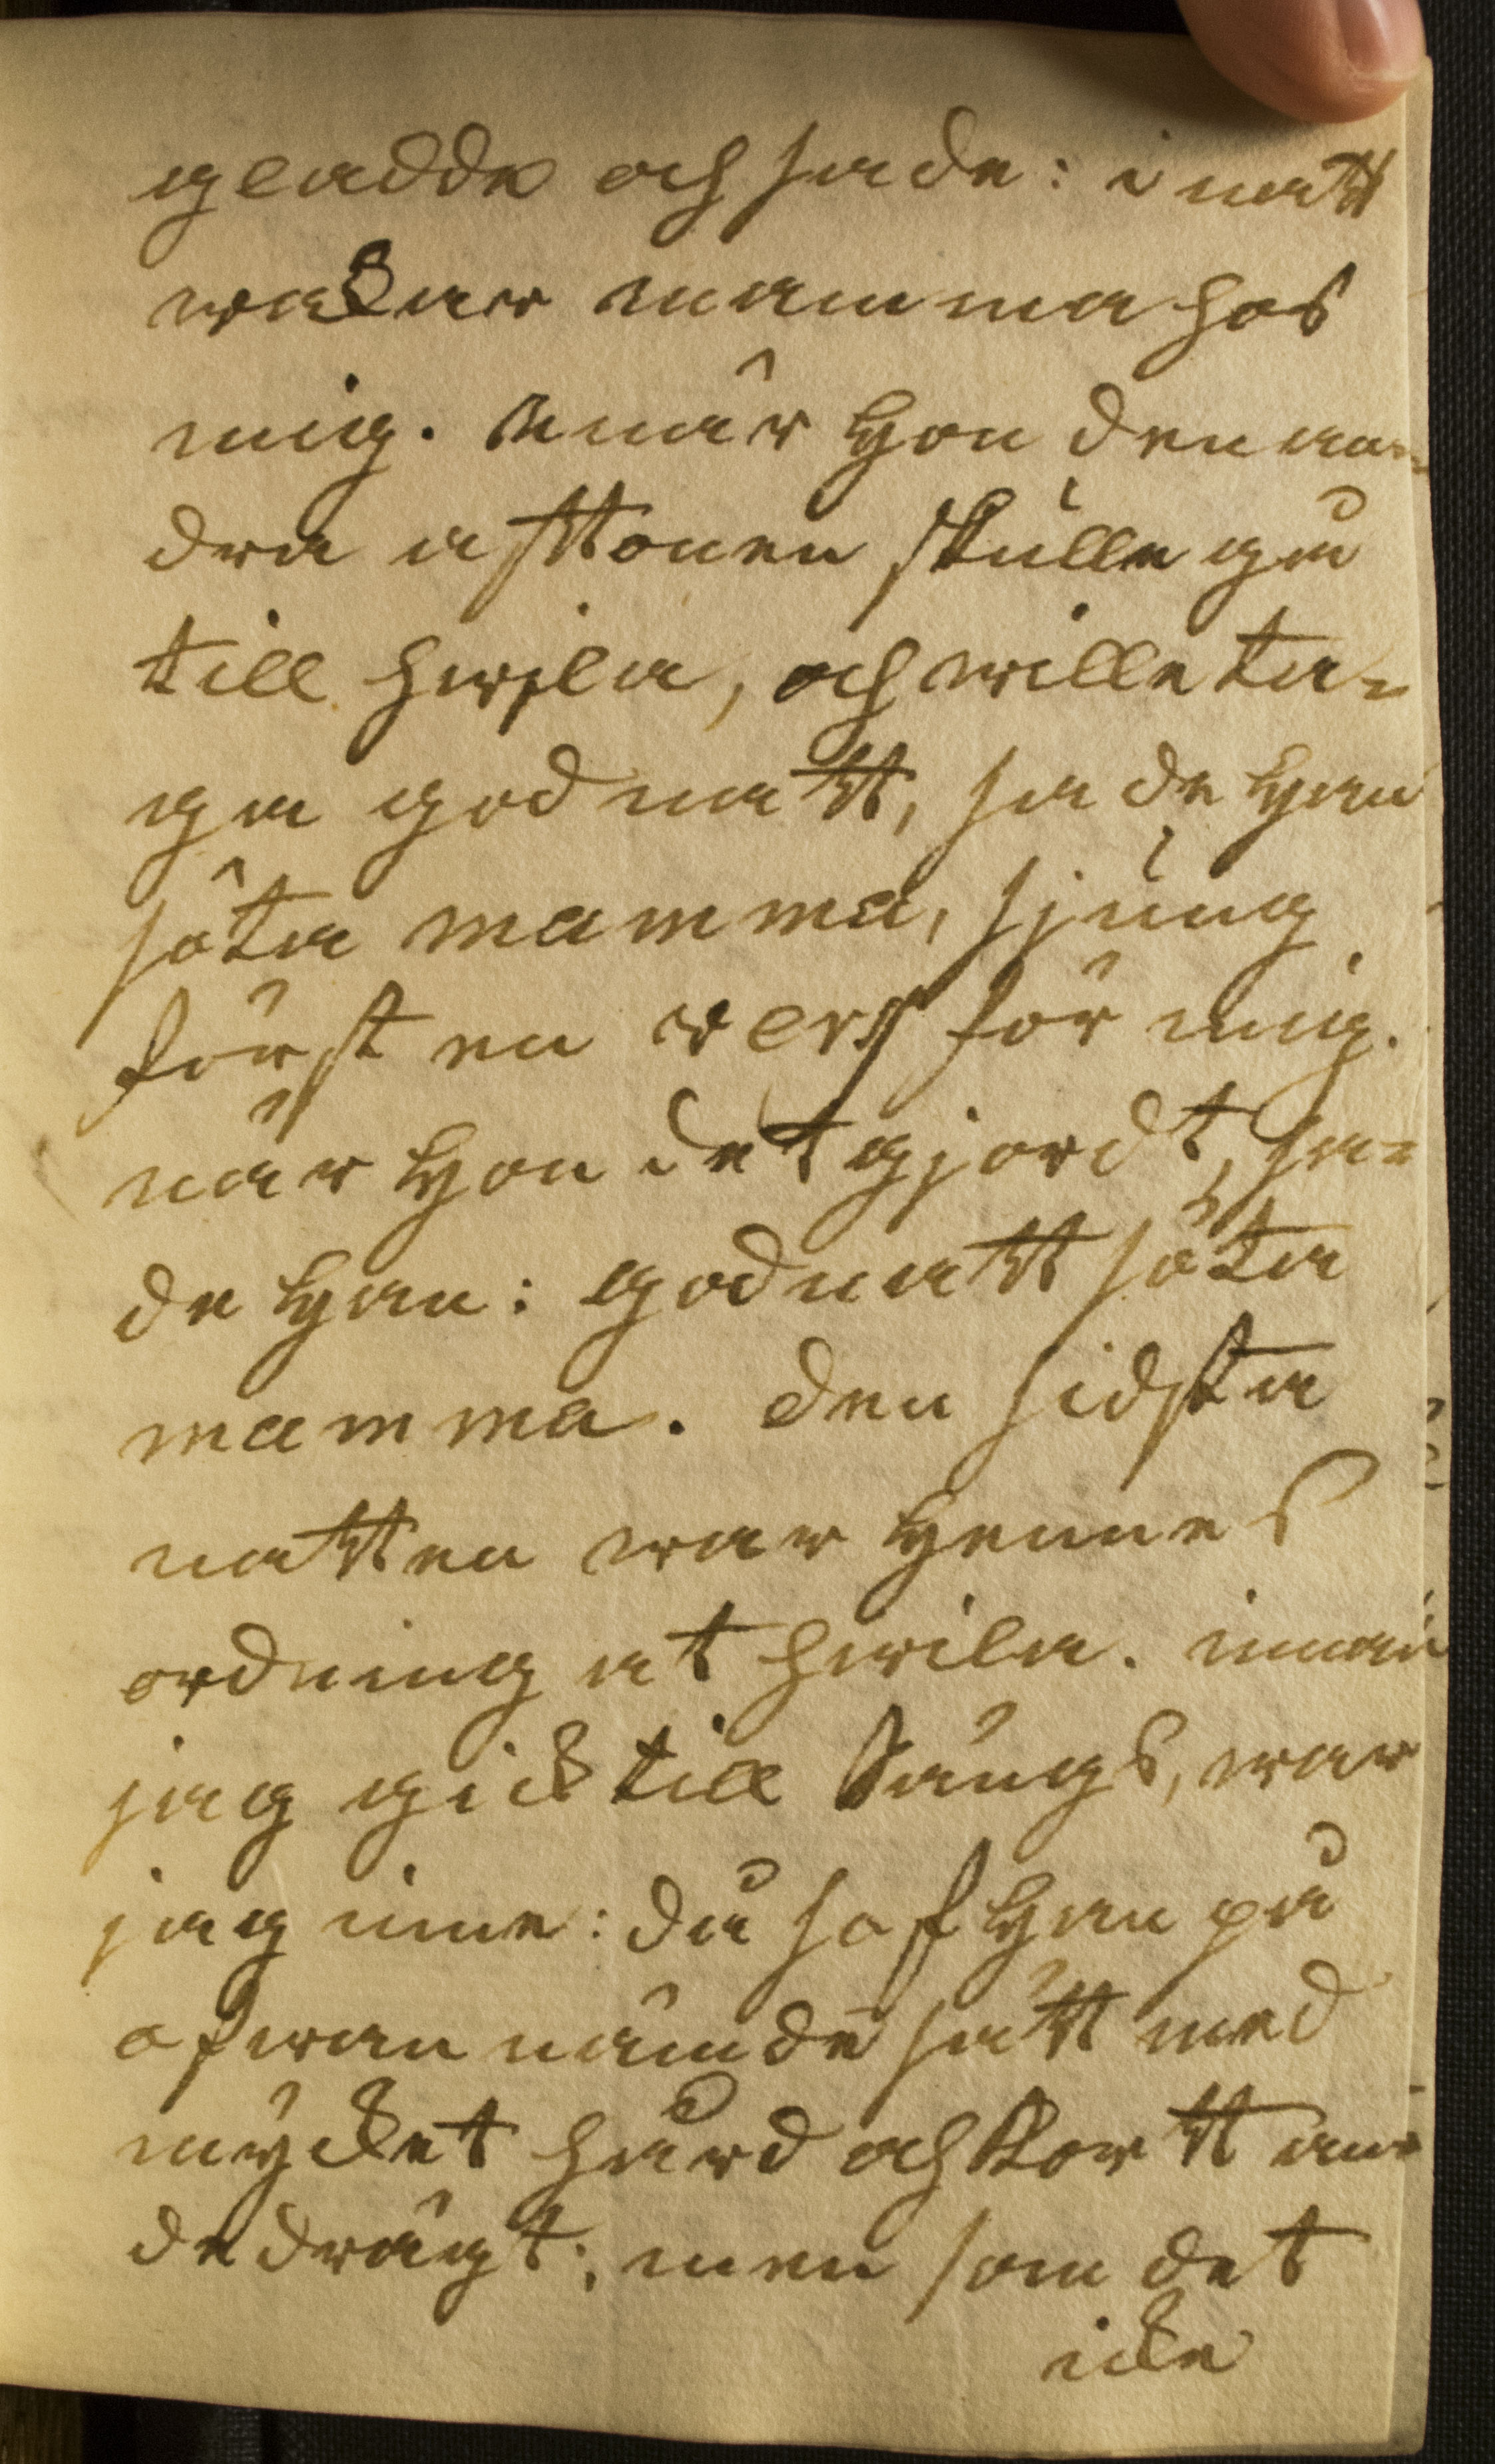 gladde och sade: i natt
wakar mamma hos
mig. När hon den an-
dra afttonen skulle gå
till hwila, och wille ta-
ga god natt, sade han
söta mamma, sjung
först en vers för mig.
när hon det gjordt, sa-
de han: god natt söta
mamma. den sidsta
natten war hennes
ordning at hwila. innan
jag gick till Sängs, war
jag inne: då sof han på
ofwannämde sätt med
mycket hård och kortt an-
dedrägt; men som det
icke